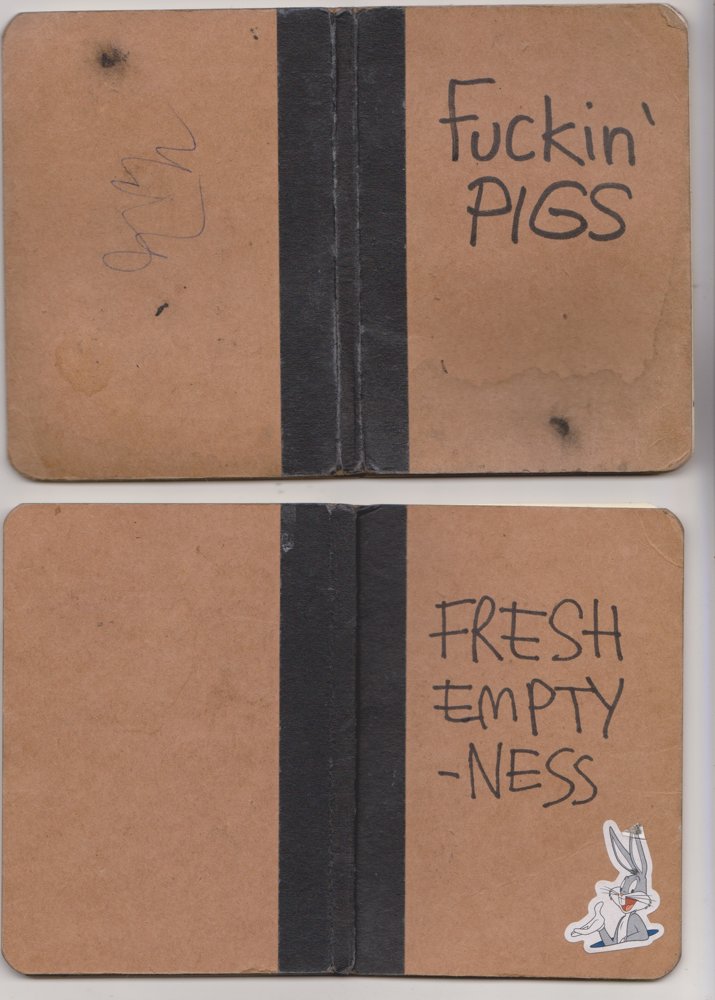 Fuckin'
PIGS
FRESH
EMPTY
-NESS